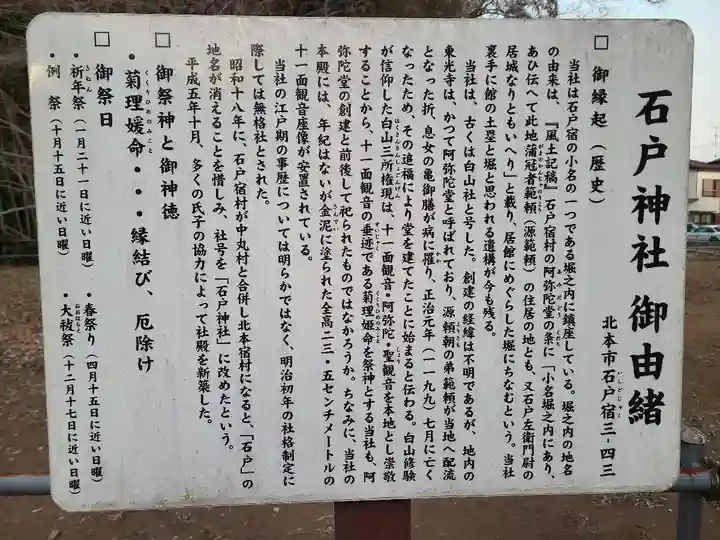 石戸神社 御由緒
北本市石戸宿三-四三
いしとじゅく
□ 御縁起（歴史）
当社は石戸宿の小名の一つである堀之内に鎮座している。堀之内の地名
の由来は、『風土記稿』石戸宿村の阿弥陀堂の条に「小名堀之内にあり、
あひ伝へて此地蒲冠者範頼（源範頼）の住居の地とも、又石戸左衛門尉の
居城なりともいへり」と載り、居館にめぐらした堀にちなむという。当社
裏手に館の土塁と堀と思われる遺構が今も残る。
当社は、古くは白山社と号した。創建の経緯は不明であるが、地内の
東光寺は、かつて阿弥陀堂と呼ばれており、源頼朝の弟範頼が当地へ配流
となった折、息女の亀御膳が病に罹り、正治元年（一一九九）七月に亡く
なったため、その追福により堂を建てたことに始まると伝わる。白山修験
が信仰した白山三所権現は、十一面観音・阿弥陀・聖観音を本地とし崇敬
することから、十一面観音の垂迹である菊理姫命を祭神とする当社も、阿
弥陀堂の創建と前後して祀られたものではなかろうか。ちなみに、当社の
本殿には、年紀はないが金泥に塗られた全高二三・五センチメートルの
十一面観音座像が安置されている。
当社の江戸期の事歴については明らかではなく、明治初年の社格制定に
際しては無格社とされた。
昭和十八年に、石戸宿村が中丸村と合併し北本宿村になると、「石戸」の
地名が消えることを惜しみ、社号を「石戸神社」に改めたという。
平成五年十月、多くの氏子の協力によって社殿を新築した。
□ 御祭神と御神徳
くくりひめのみこと
・菊理媛命・・・縁結び、厄除け
□ 御祭日
きねん
・祈年祭（一月二十一日に近い日曜）
・春祭り（四月十五日に近い日曜）
・例 祭（十月十五日に近い日曜）
おおはらえ
・大祓祭（十二月十七日に近い日曜）